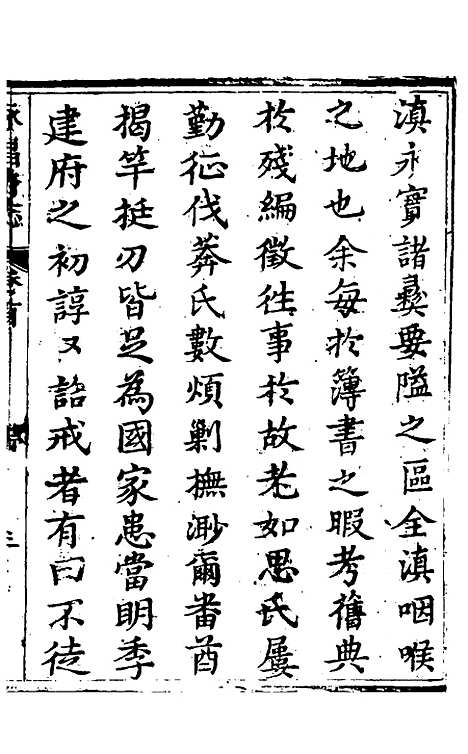 滇永實諸彝要隘之區全滇咽喉
之地也余每扵簿書之暇考舊典
扵殘編徵徃事扵故老如思氏屢
勤征伐莽氏數煩剿撫渺爾畨酋
揭竿挺刃皆足為國家患當明季
建府之初諄又誥戒者有曰不徒
永昌府志 卷首 三